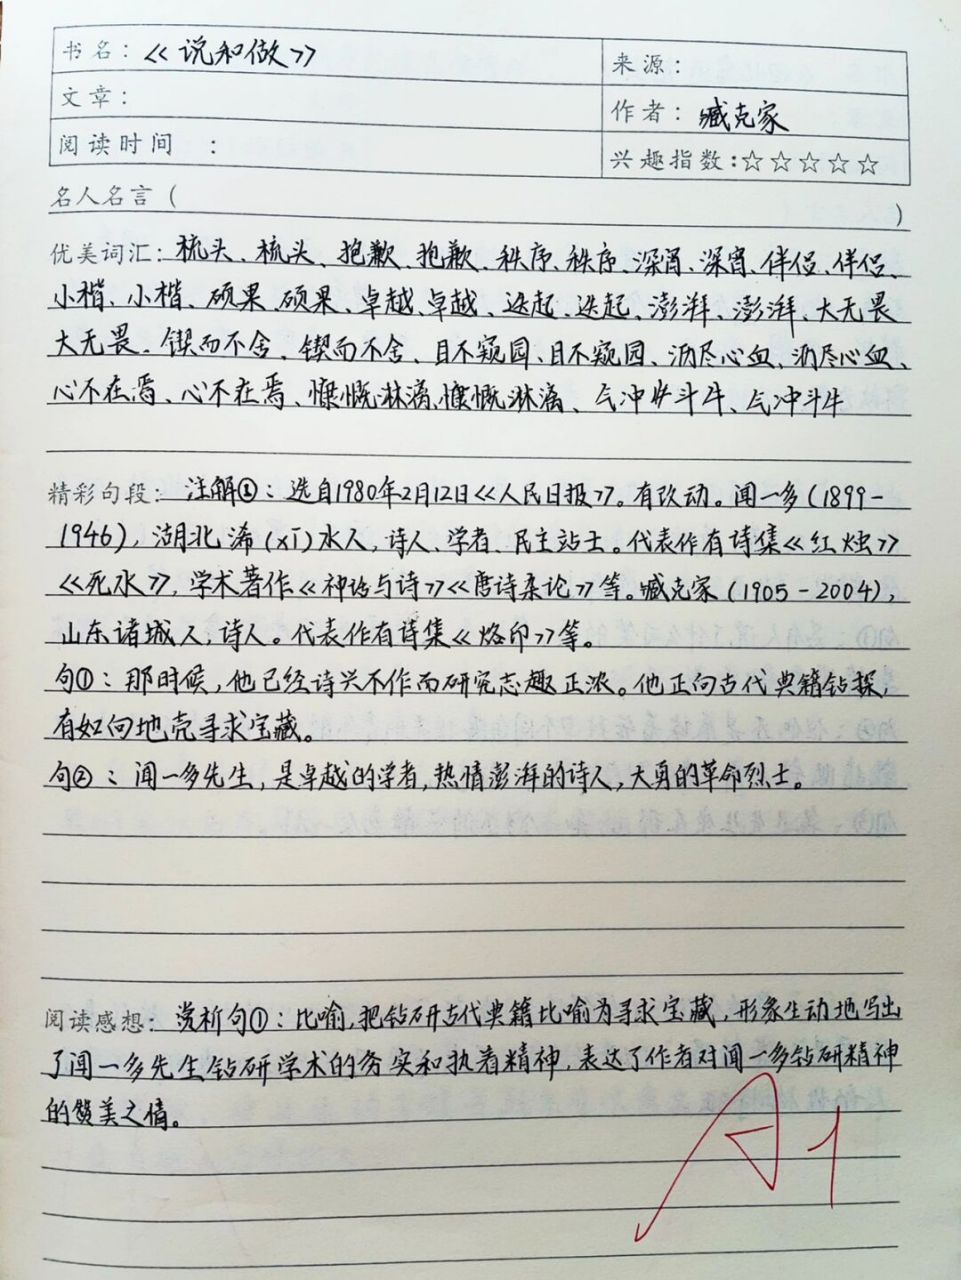 书名：《说和做》
来源：
文章：
作者：臧克家
阅读时间 ：
兴趣指数：☆☆☆☆☆
名人名言（ ）
优美词汇：梳头、梳头、抱歉、抱歉、秩序、秩序、深宵、深宵、伴侣、伴侣、
小楷、小楷、硕果、硕果、卓越、卓越、迭起、迭起、澎湃、澎湃、大无畏
大无畏、锲而不舍、锲而不舍、目不窥园、目不窥园、沥尽心血、沥尽心血、
心不在焉、心不在焉、慷慨淋漓、慷慨淋漓、气冲斗牛、气冲斗牛
精彩句段：注解①：选自1980年2月12日《人民日报》。有改动。闻一多(1899-
1946)，湖北浠(xī)水人，诗人、学者、民主站士。代表作有诗集《红烛》
《死水》，学术著作《神话与诗》《唐诗杂论》等。臧克家(1905-2004)，
山东诸城人，诗人。代表作有诗集《烙印》等。
句①：那时候，他已经诗兴不作而研究志趣正浓。他正向古代典籍钻探，
有如向地壳寻求宝藏。
句②：闻一多先生，是卓越的学者，热情澎湃的诗人，大勇的革命烈士。
阅读感想：赏析句①：比喻，把钻研古代典籍比喻为寻求宝藏，形象生动地写出
了闻一多先生钻研学术的务实和执着精神，表达了作者对闻一多钻研精神
的赞美之情。
A1